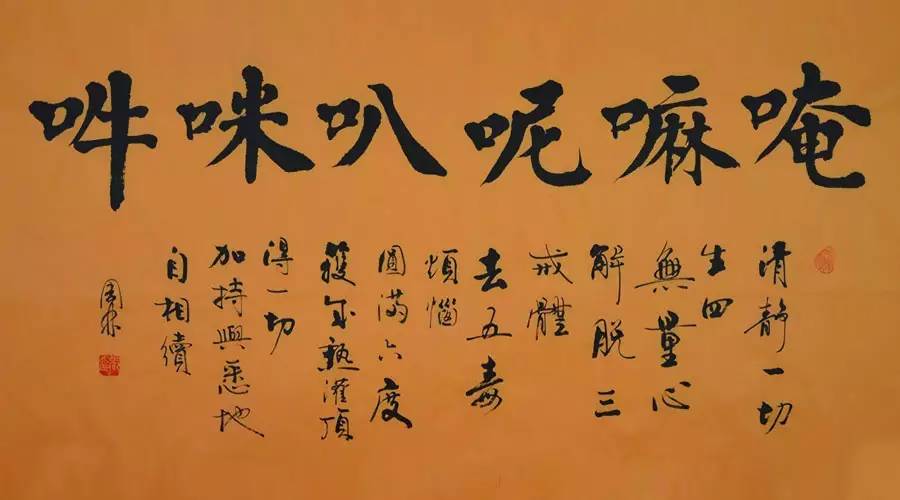 唵嘛呢叭咪吽
清靜一切
生四
無量心
解脫三
戒體
去五毒
煩惱
圓滿六度
獲成熟灌頂
得一切
加持與悉地
自相續